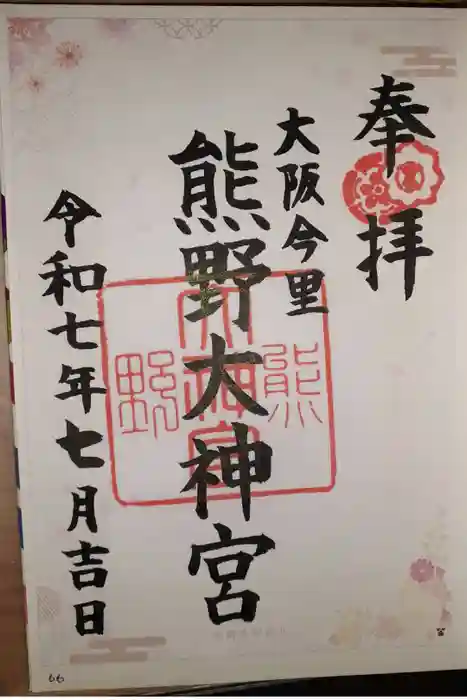 奉拝
大阪今里
熊野大神宮
熊
大神宮
野
令和七年七月吉日
66